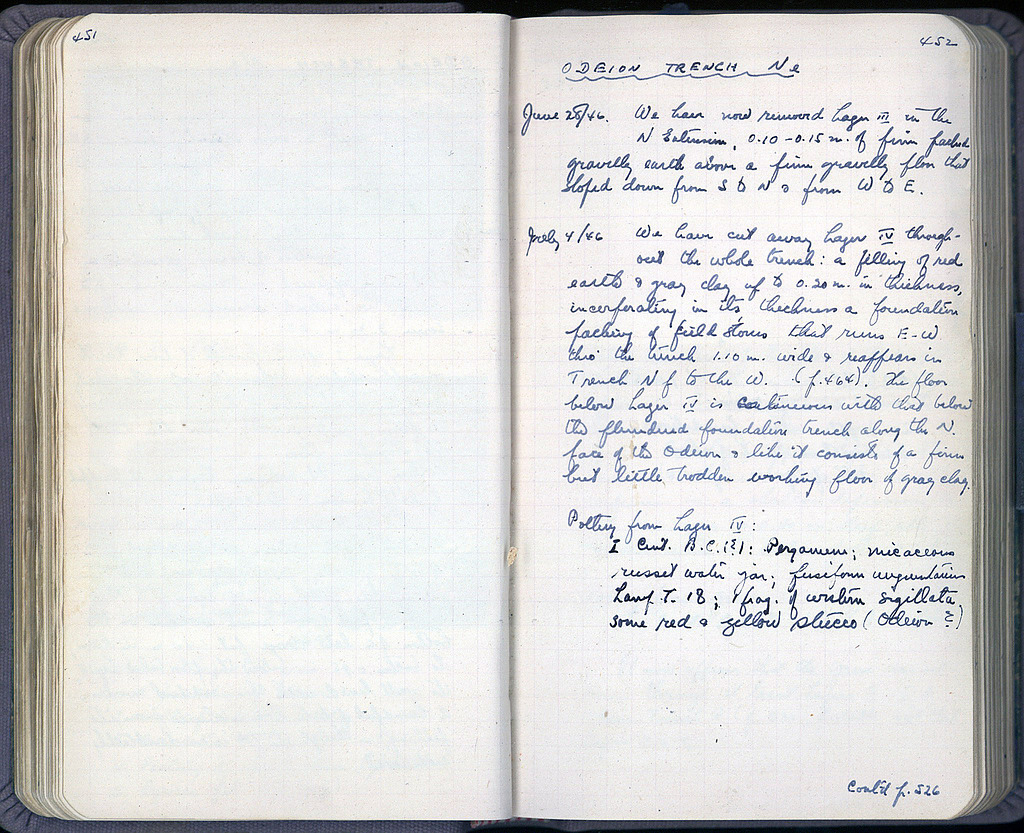 451
452
ODEION TRENCH Ne
June 28/46. We have now removed Layer III in the
N Extension, 0.10-0.15 m. of firm packed
gravelly earth above a firm gravelly floor that
sloped down from S to N & from W to E.
July 4/46 We have cut away Layer IV through-
out the whole trench: a filling of red
earth & gray clay up to 0.20 m. in thickness,
incorporating in its thickness a foundation
packing of field stones that runs E-W
thro' the trench 1.10 m. wide & reappears in
Trench Nf to the W. (p. 464). The floor
below Layer IV is continuous with that below
the plundered foundation trench along the N.
face of the Odeion & like it consists of a firm
but little trodden working floor of gray clay.
Pottery from Layer IV:
I Cent. B.C.(?): Pergamene; micaceous
russet water jar; fusiform unguentarium
Lamp T. 18; 1 frag. of western sigillata,
some red & yellow stucco (Odeion ?)
Cont'd p. 526